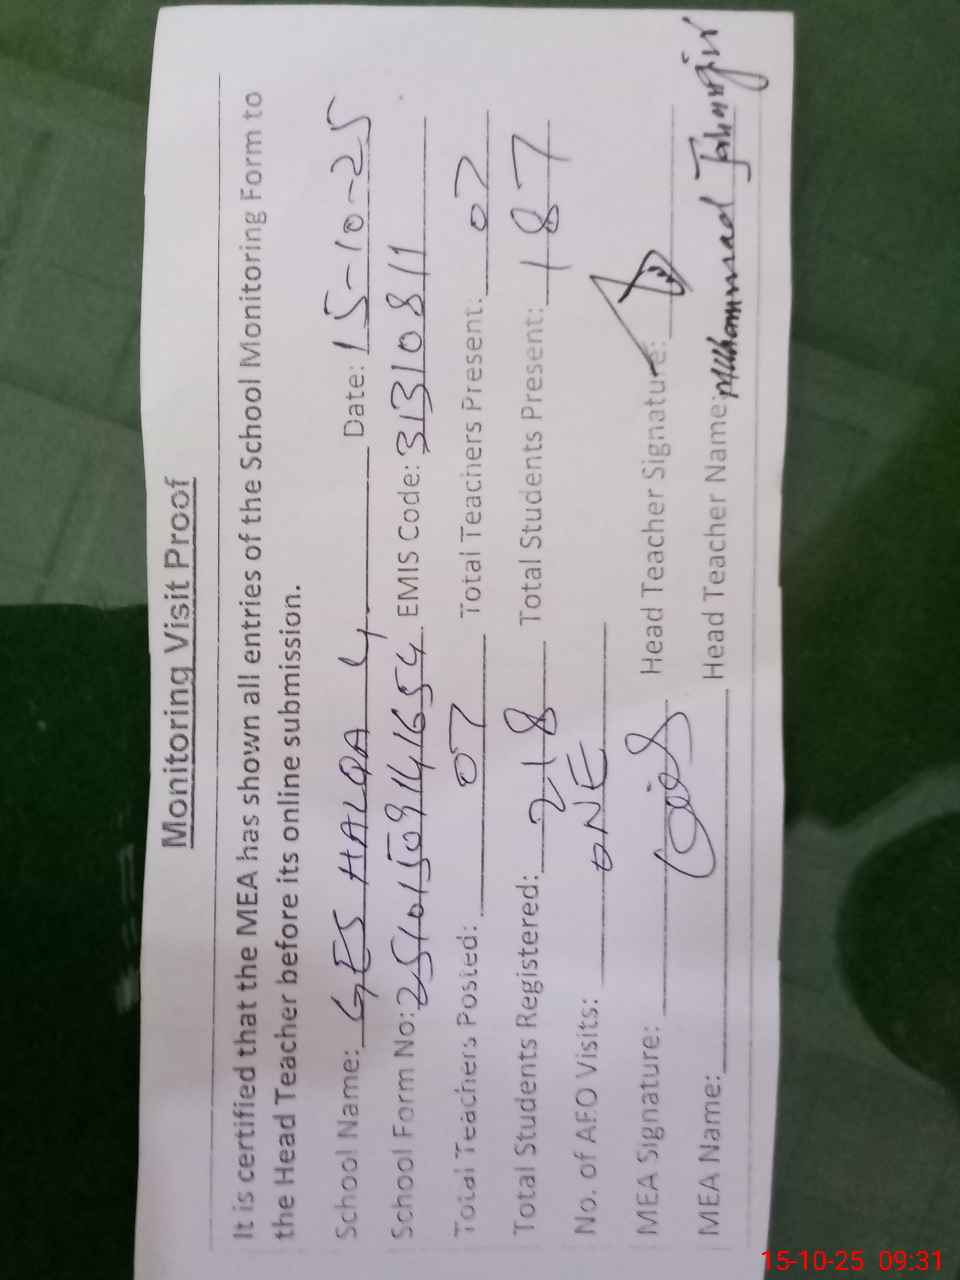 Monitoring Visit Proof
It is certified that the MEA has shown all entries of the School Monitoring Form to
the Head Teacher before its online submission.
School Name: GES HALQA 4 Date: 15-10-25
School Form No: 25101509141654 EMIS Code: 31310811
Total Teachers Posted: 07 Total Teachers Present: 07
Total Students Registered: 218 Total Students Present: 187
No. of AEO Visits: ONE
MEA Signature: Head Teacher Signature:
MEA Name: Head Teacher Name: Muhammad Jahangir
15-10-25 09:31